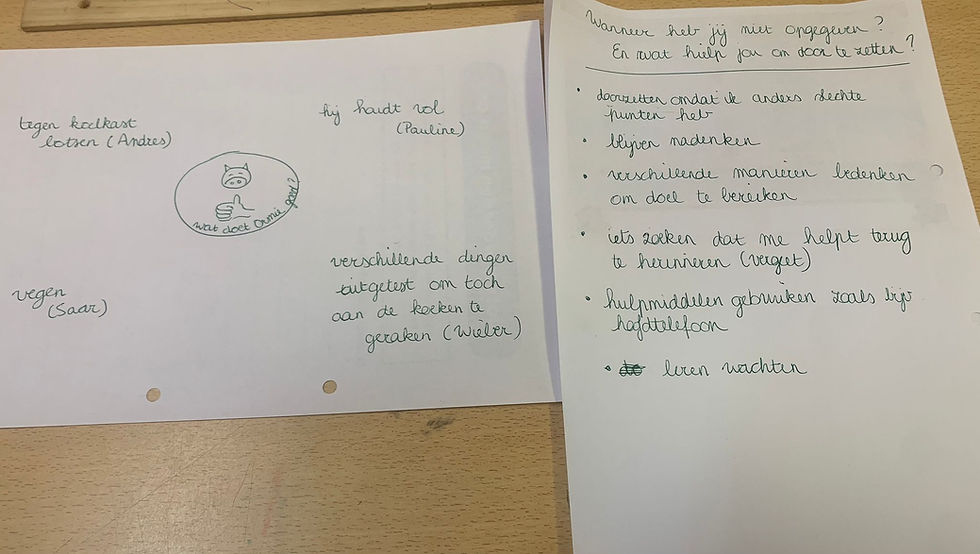 tegen koelkast
botsen (Andres)
hij houdt vol
(Pauline)
wat doet Ormie goed?
vegen
(Saar)
verschillende dingen
uitgetest om toch
aan de koeken te
geraken (Wieber)
Wanneer heb jij niet opgegeven?
En wat hielp jou om door te zetten?
• doorzetten omdat ik anders slechte
punten heb
• blijven nadenken
• verschillende manieren bedenken
om doel te bereiken
• iets zoeken dat me helpt terug
te herinneren (vergeet)
• hulpmiddelen gebruiken zoals bijv
hoofdtelefoon
• leren wachten